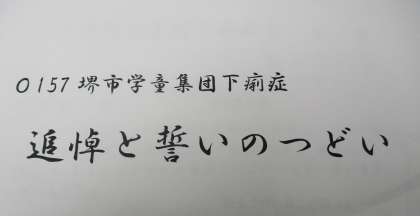 O157堺市学童集団下痢症
追悼と誓いのつどい